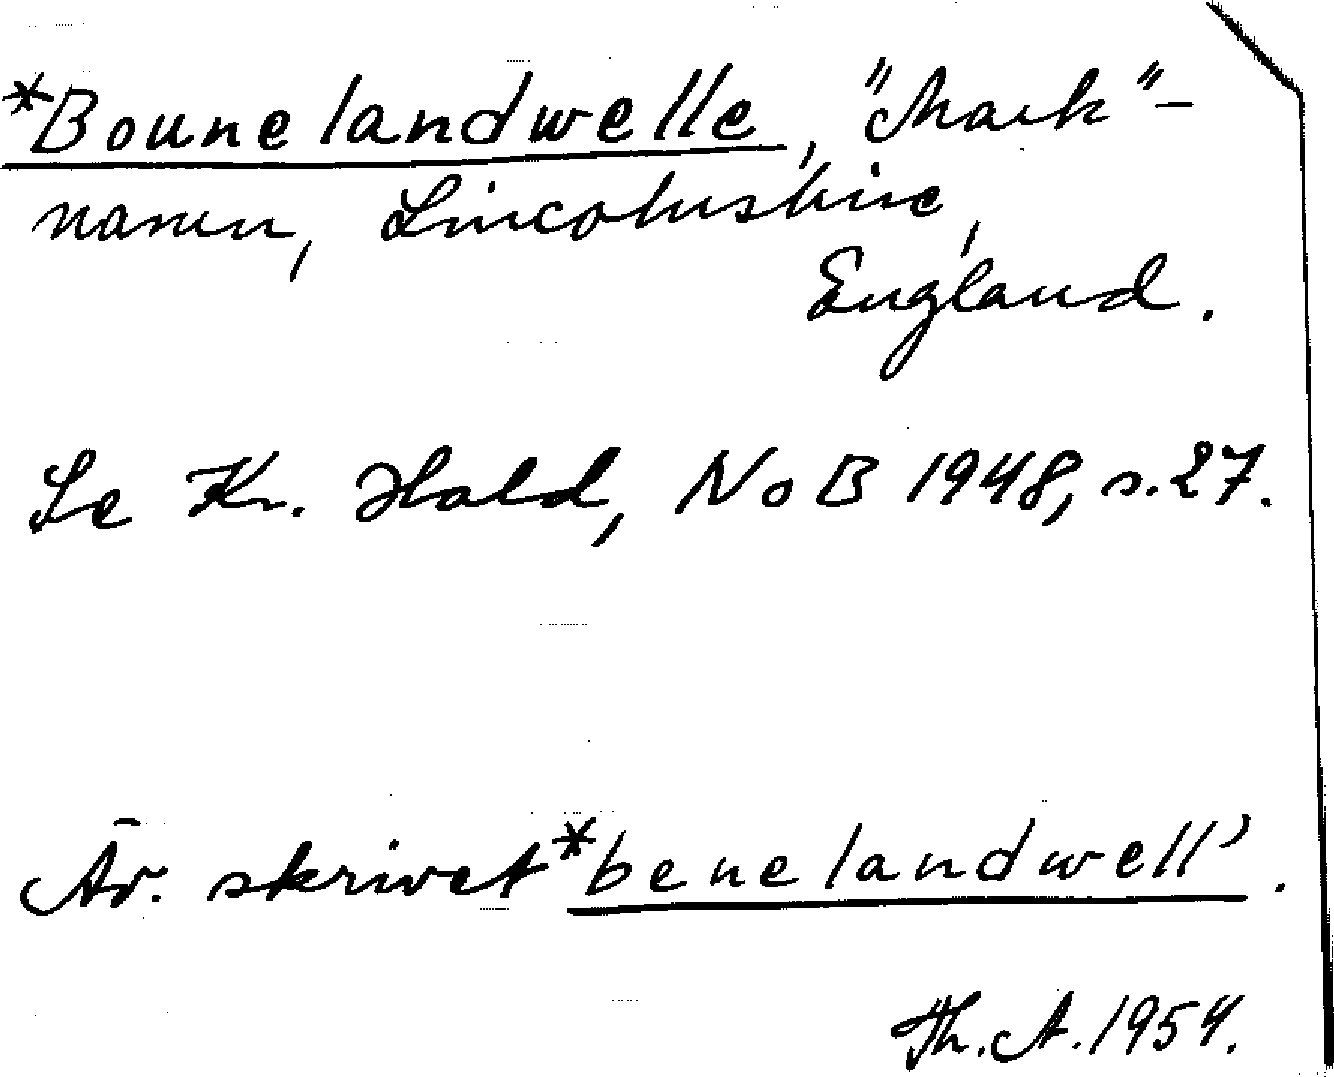 *Bounelandwelle, "Mark"-
namn, Lincolnshire,
England.
Se Kr. Hald, NoB 1948, s. 27.
Äv. skrivet *benelandwell'.
Th. A. 1954.